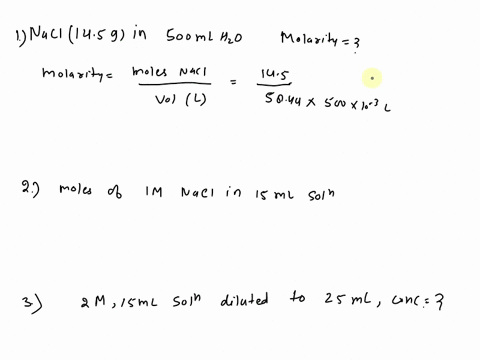 1.) NaCl (14.5 g) in 500mL H2O Molarity = ?
Molarity = moles NaCl / Vol (L) = 14.5 / 58.44 × 500 × 10⁻³ L
2.) moles of 1M NaCl in 15 mL solⁿ
3.) 2M, 15mL solⁿ diluted to 25 mL, conc = ?